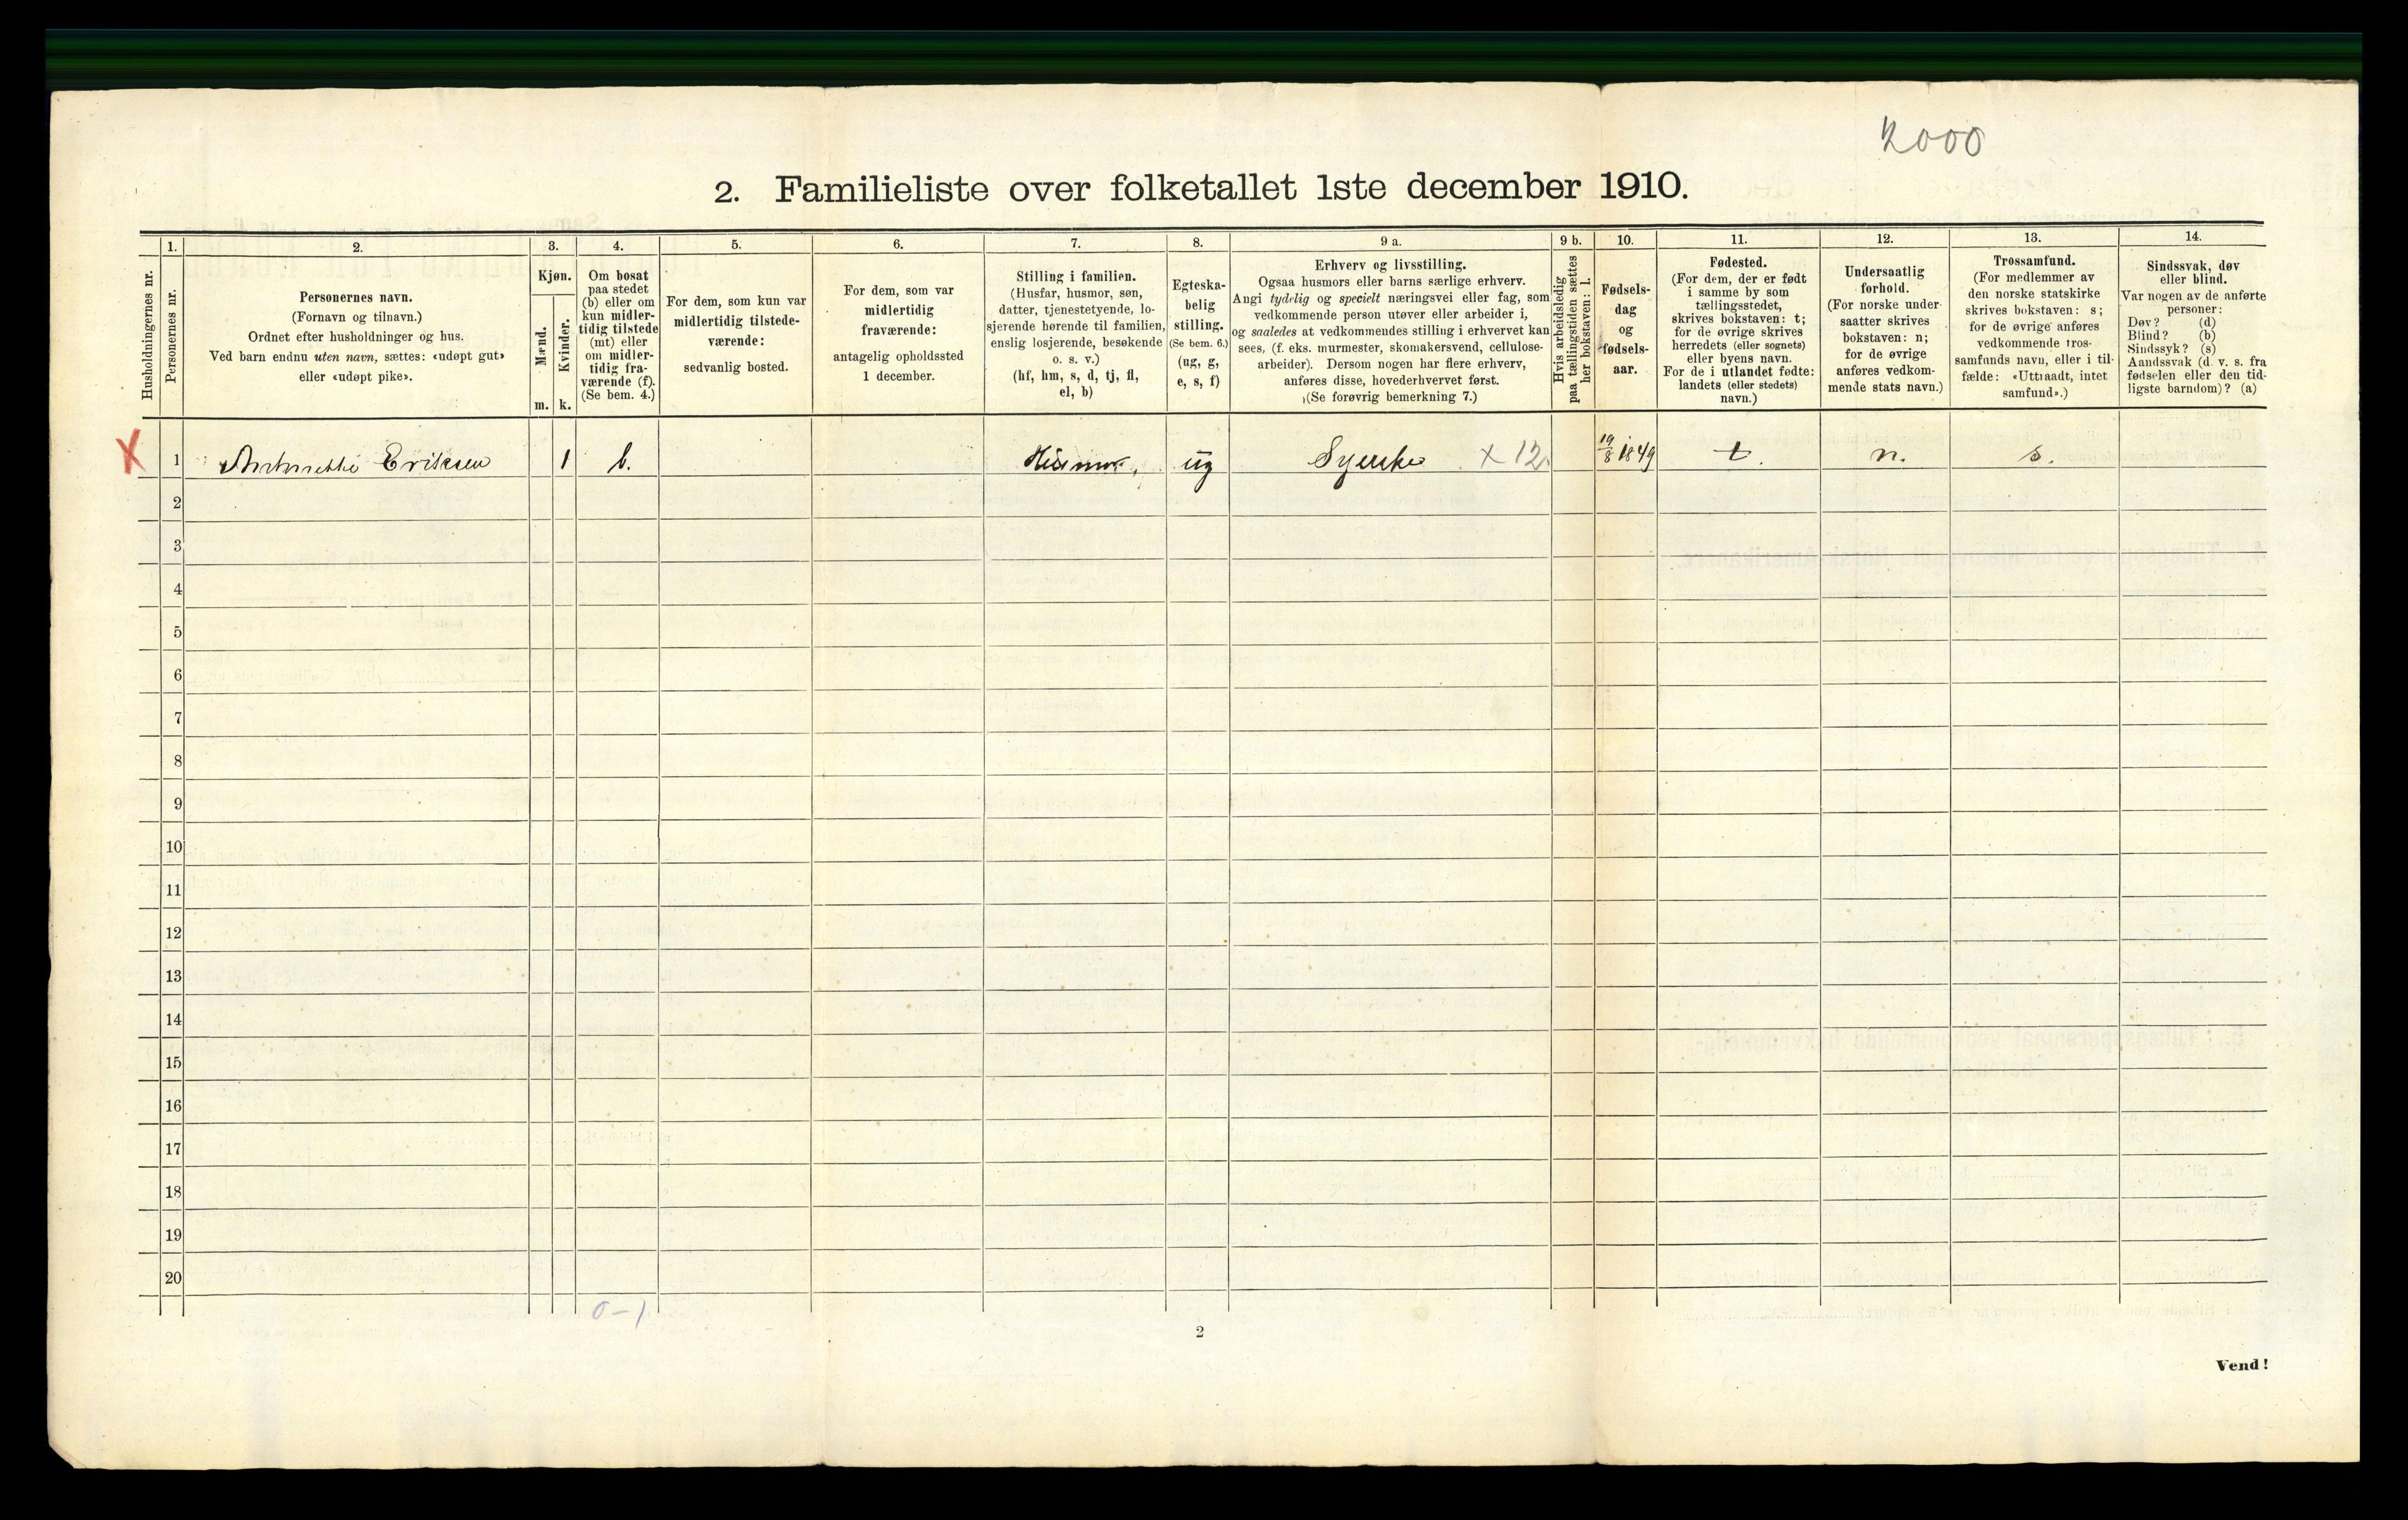 2000
2. Familieliste over folketallet 1ste december 1910.
Husholdningernes nr.
1.
Personernes nr.
2.
Personernes navn.
(Fornavn og tilnavn.)
Ordnet efter husholdninger og hus.
Ved barn endnu uten navn, sættes: «udøpt gut»
eller «udøpt pike».
3.
Kjøn.
Mænd.
Kvinder.
m. k.
4.
Om bosat
paa stedet
(b) eller om
kun midler-
tidig tilstede
(mt) eller
om midler-
tidig fra-
værende (f).
(Se bem. 4.)
5.
For dem, som kun var
midlertidig tilstede-
værende:
sedvanlig bosted.
6.
For dem, som var
midlertidig
fraværende:
antagelig opholdssted
1 december.
7.
Stilling i familien.
(Husfar, husmor, søn,
datter, tjenestetyende, lo-
sjerende hørende til familien,
enslig losjerende, besøkende
o. s. v.)
(hf, hm, s, d, tj, fl,
el, b)
8.
Egteska-
belig
stilling.
(Se bem. 6.)
(ug, g,
e, s, f)
9 a.
Erhverv og livsstilling.
Ogsaa husmors eller barns særlige erhverv.
Angi tydelig og specielt næringsvei eller fag, som
vedkommende person utøver eller arbeider i,
og saaledes at vedkommendes stilling i erhvervet kan
sees, (f. eks. murmester, skomakersvend, cellulose-
arbeider). Dersom nogen har flere erhverv,
anføres disse, hovederhvervet først.
(Se forøvrig bemerkning 7.)
9 b.
Hvis arbeidsledig
paa tællingstiden sættes
her bokstaven: l.
10.
Fødsels-
dag
og
fødsels-
aar.
11.
Fødested.
(For dem, der er født
i samme by som
tællingsstedet,
skrives bokstaven: t;
for de øvrige skrives
herredets (eller sognets)
eller byens navn.
For de i utlandet fødte:
landets (eller stedets)
navn.)
12.
Undersaatlig
forhold.
(For norske under-
saatter skrives
bokstaven: n;
for de øvrige
anføres vedkom-
mende stats navn.)
13.
Trossamfund.
(For medlemmer av
den norske statskirke
skrives bokstaven: s;
for de øvrige anføres
vedkommende tros-
samfunds navn, eller i til-
fælde: «Uttraadt, intet
samfund».)
14.
Sindssvak, døv
eller blind.
Var nogen av de anførte
personer:
Døv? (d)
Blind? (b)
Sindssyk? (s)
Aandssvak (d. v. s. fra
fødselen eller den tid-
ligste barndom)? (a)
X 1 Antonette Eriksen 1 b. Husmor, ug Syerske X 12. 19/8 1849 t. n. s.
2
3
4
5
6
7
8
9
10
11
12
13
14
15
16
17
18
19
20
0-1
2
Vend!